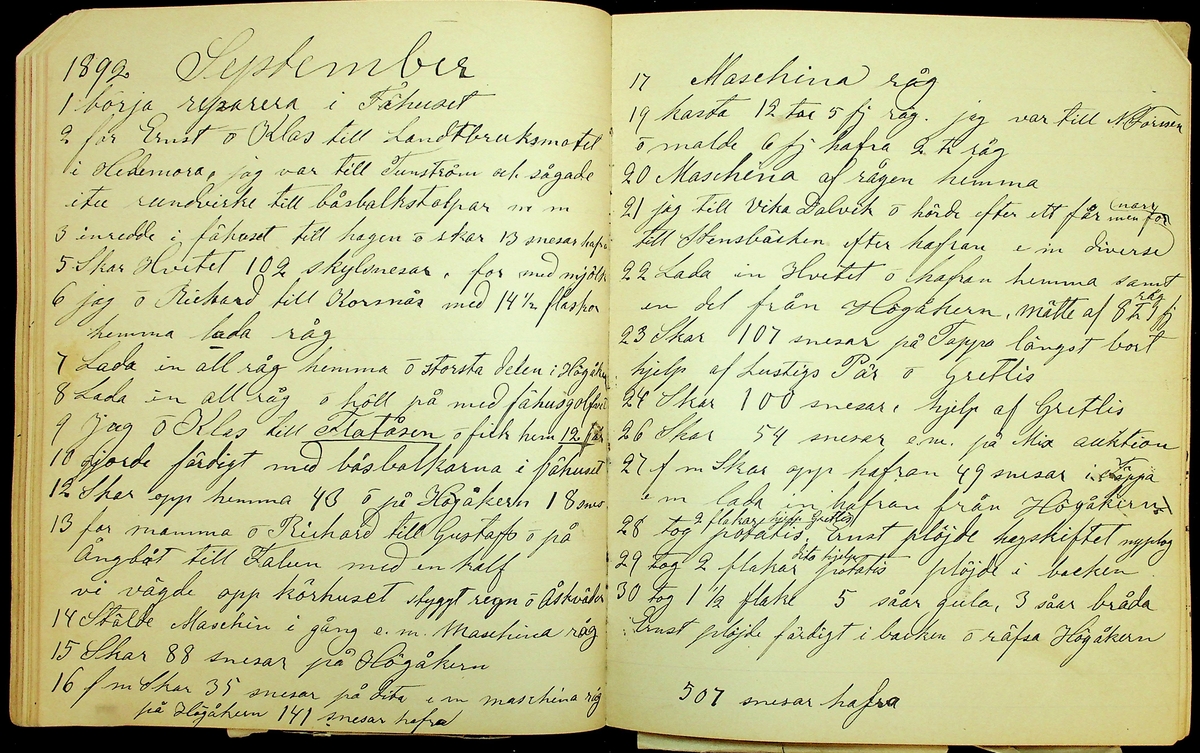 1892 September
1 börja reparera i Fähuset
2 for Ernst o Klas till Landtbruksmötet
i Hedemora, jag var till Tunström och sågade
itu rundvirke till båsbalkstolpar m m
3 inredde i fähuset till hagen o skar 13 snesar hafra
5 Skar Hvitet 102 skylsnesar. for med mjölk
6 jag o Richard till Korsnäs med 14 1/2
hemma lada råg
7 Lada in all råg hemma o största delen i Högåkern
8 Lada in all råg o höll på med fähusgolfvet
9 Jag o Klas till Flatåsen o fick hem 12 får
10 gjorde färdigt med båsbalkarna i fähuset
12 Skar opp hemma 43 o på Högåkern 18 snes
13 for mamma o Richard till Gustafs o på
Ångbåt till Falun med en kalf
vi vägde opp körhuset styggt regn o Åskväder
14 Stälde Maschin i gång e.m. Maschina råg
15 Skar 88 snesar på Högåkern
16 f m Skar 35 snesar på dito e m maschina råg
på Högåkern 141 snesar hafra
17 Maschina råg
19 kasta 12 5 fj råg. jag var till
o malde 6 fj hafra 2 t råg
20 Maschina af rågen hemma
21 jag till Vika Dalvik o hörde efter ett får men for
till Stensbäcken efter hafran e m diverse
22 Lada in Hvetet o hafran hemma samt
en del från Högåkern, mätte af 8 t 1 fj råg
23 Skar 107 snesar på Täppa längst bort
hjelp af Lustigs Pär o Gretlis
24 Skar 100 snesar, hjelp af Gretlis
26 Skar 54 snesar e.m. på auktion
27 f m Skar opp hafran 49 snesar i Täppa
e m lada in hafran från Högåkern
28 tog 2 flakar potatis hjelp Gretlis, Ernst plöjde hagskiftet nyplog
29 tog 2 flakar potatis dito hjelp plöjde i backen
30 tog 1 1/2 flake 5 såar gula, 3 såar bråda
Ernst plöjde färdigt i backen o räfsa Högåkern
507 snesar hafra